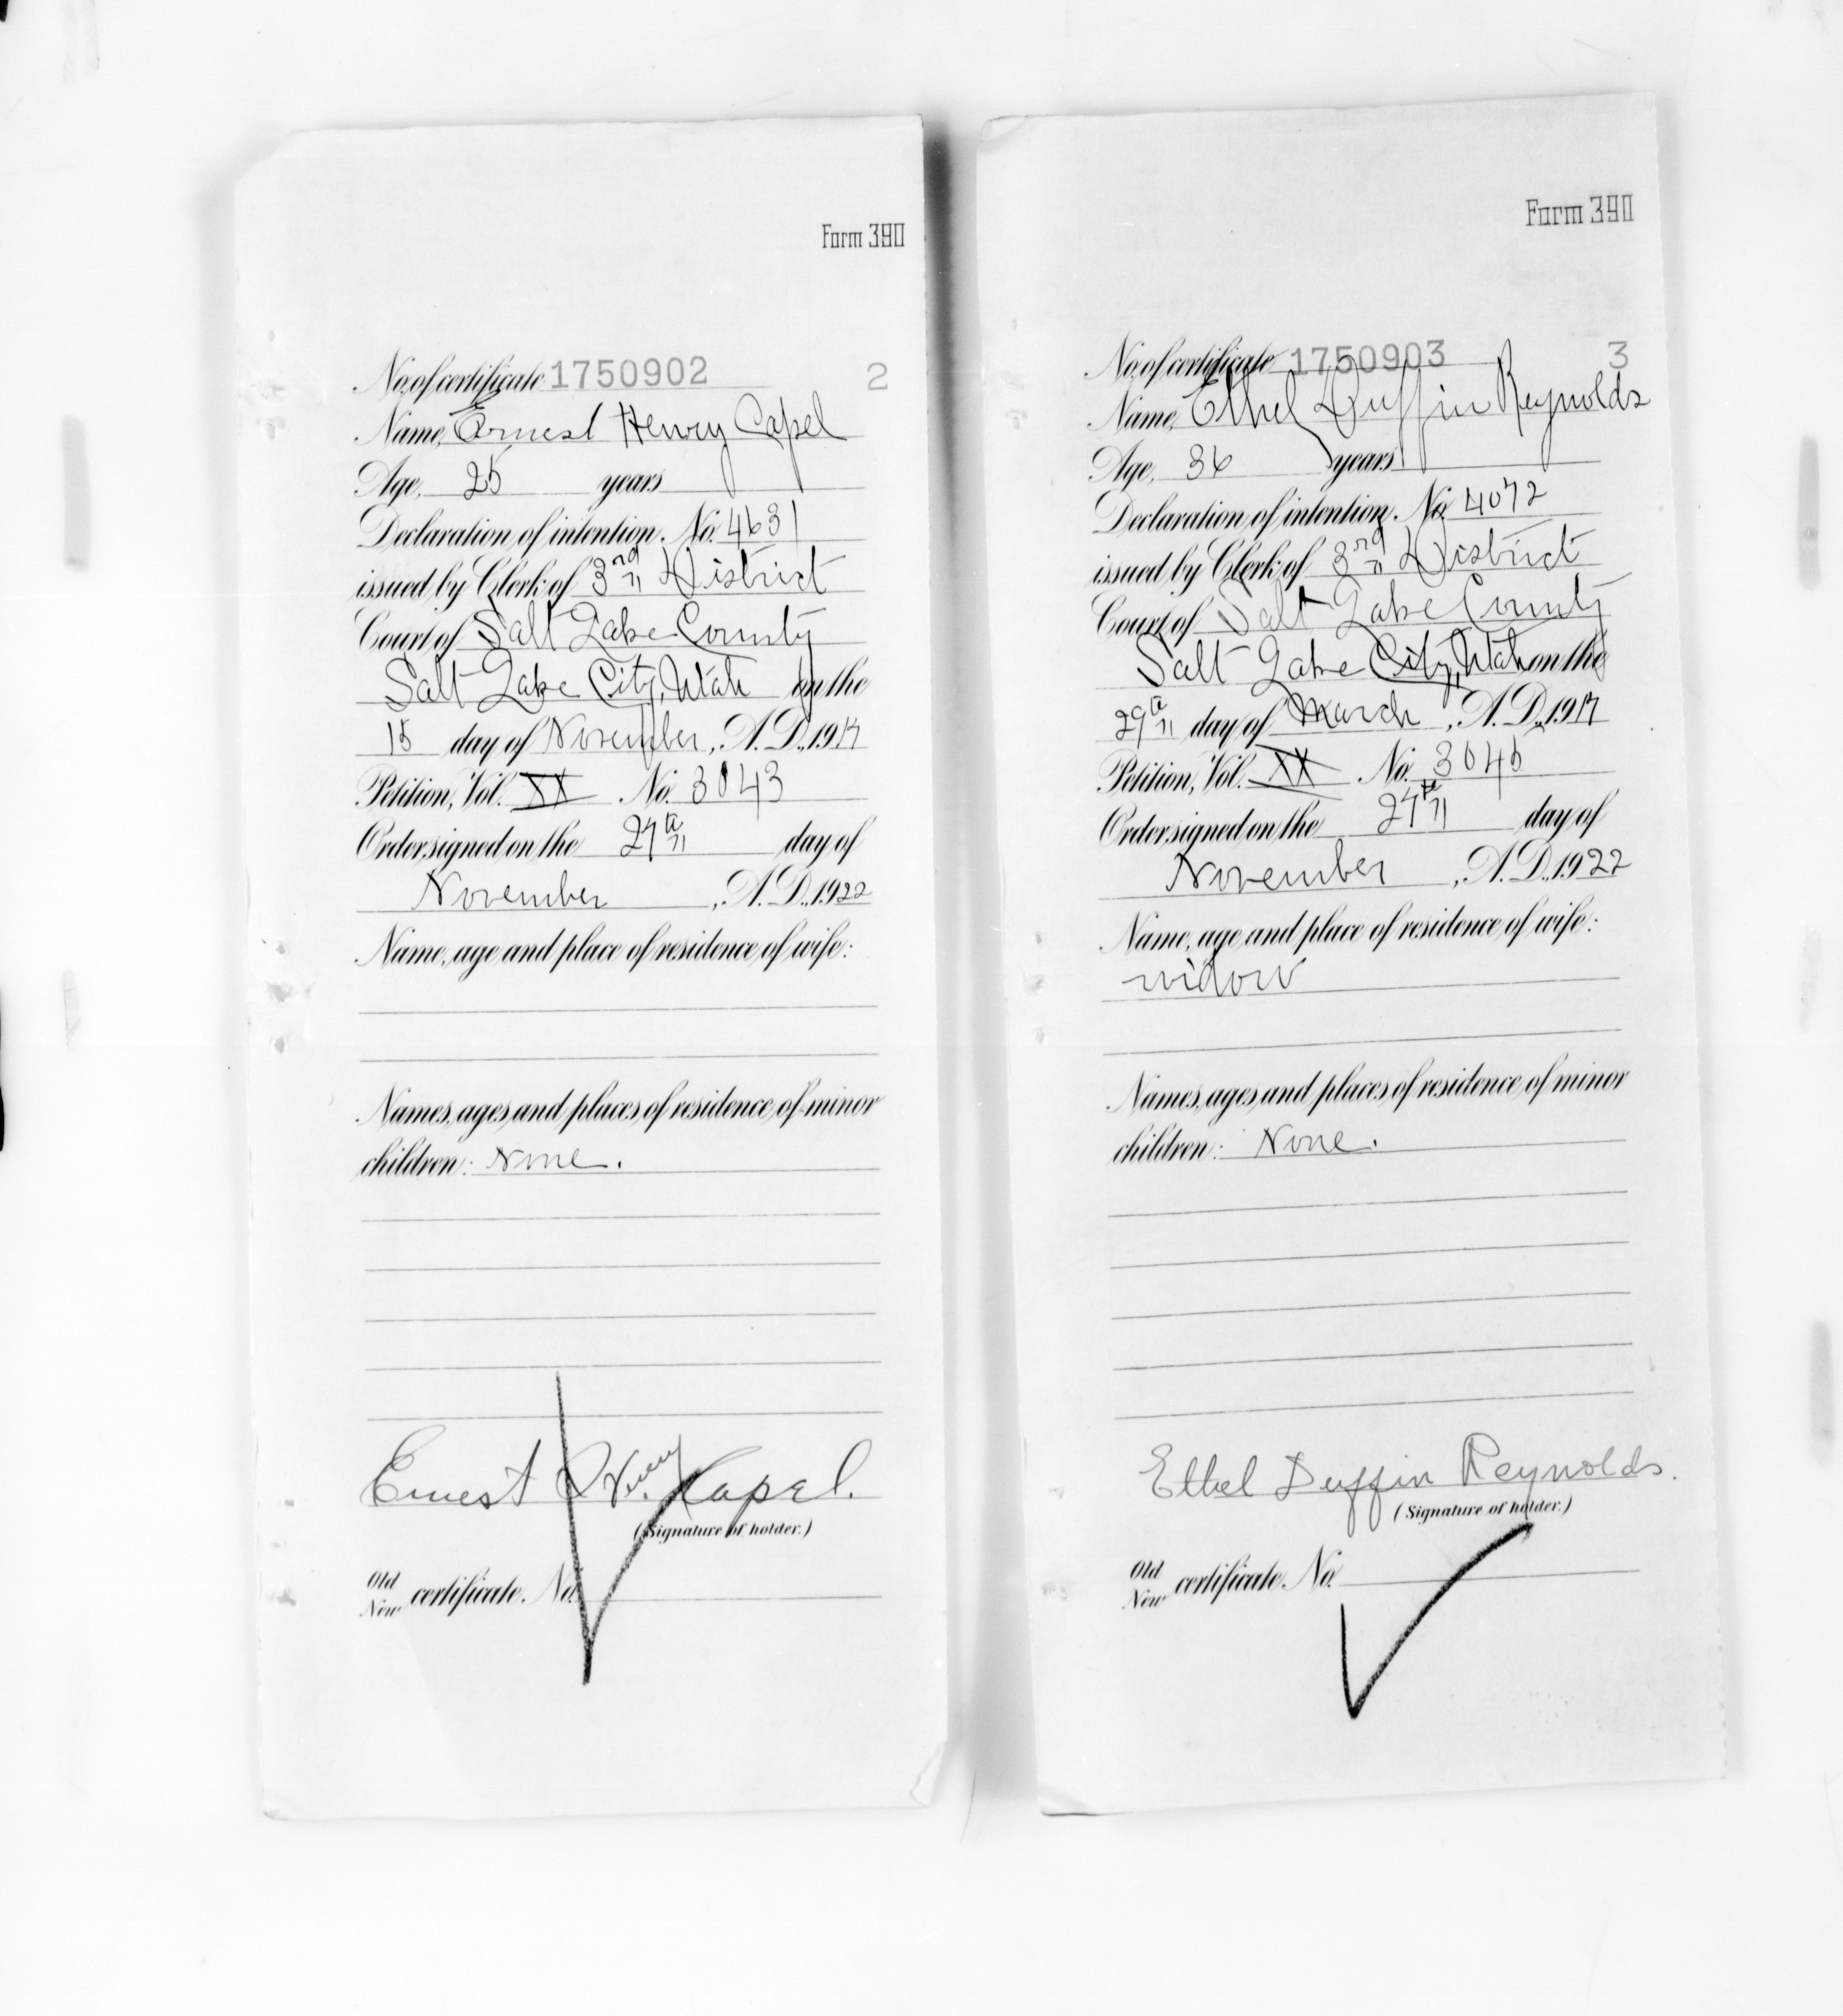 Form 390
No. of certificate 1750902 2
Name Ernest Henry Capel
Age, 25 years
Declaration of intention, No. 4631
issued by Clerk of 3rd District
Court of Salt Lake County
Salt Lake City, Utah on the
15 day of November, A.D., 1917
Petition, Vol. XX No. 3043
Order signed on the 27th day of
November, A.D., 1922
Name, age and place of residence of wife:
Names, ages and places of residence of minor
children: None.
Ernest Henry Capel.
(Signature of holder.)
Old
New certificate, No.
Form 390
No. of certificate 1750903 3
Name, Ethel Duffin Reynolds
Age, 36 years
Declaration of intention, No. 4072
issued by Clerk of 3rd District
Court of Salt Lake County
Salt Lake City, Utah on the
29th day of March, A.D., 1917
Petition, Vol. XX No. 3045
Order signed on the 27th day of
November, A.D., 1922
Name, age and place of residence of wife:
widow
Names, ages and places of residence of minor
children: None.
Ethel Duffin Reynolds.
(Signature of holder.)
Old
New certificate, No.